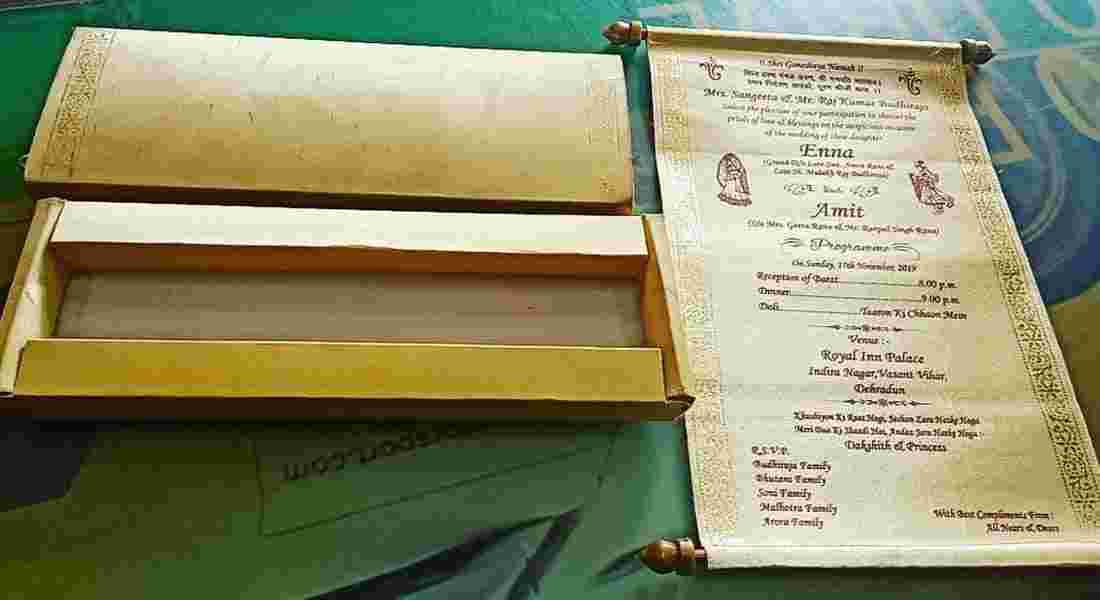 !! Shri Ganeshaya Namah !!
Mrs. Sangeeta & Mr. Raj Kumar Budhiraja
Solicit the pleasure of your participation to shower the
petals of love & blessings on the auspicious occasion
of the wedding of their daughter
Enna
(Grand D/o Late Smt. Rani &
Late Sh. Mulakh Raj Budhiraja)
With
Amit
(S/o Mrs. Geeta Rana & Mr. Ranpal Singh Rana)
Programme
On Sunday, 17th November, 2019
Reception of Barat......................8.00 p.m.
Dinner......................................9.00 p.m.
Doli.........................Taaron Ki Chhaon Mein
Venue :-
Royal Inn Palace
Indira Nagar,Vasant Vihar,
Dehradun
Khushiyon Ki Raat Hogi, Jashan Zara Hatky Hoga
Meri Bua Ki Shaadi Hai, Andaz Jara Hatky Hoga :-
Dakshith & Princess
R.S.V.P.
Budhiraja Family
Bhutani Family
Soni Family
Malhotra Family
Arora Family
With Best Compliments From :
All Nears & Dears
sport.com